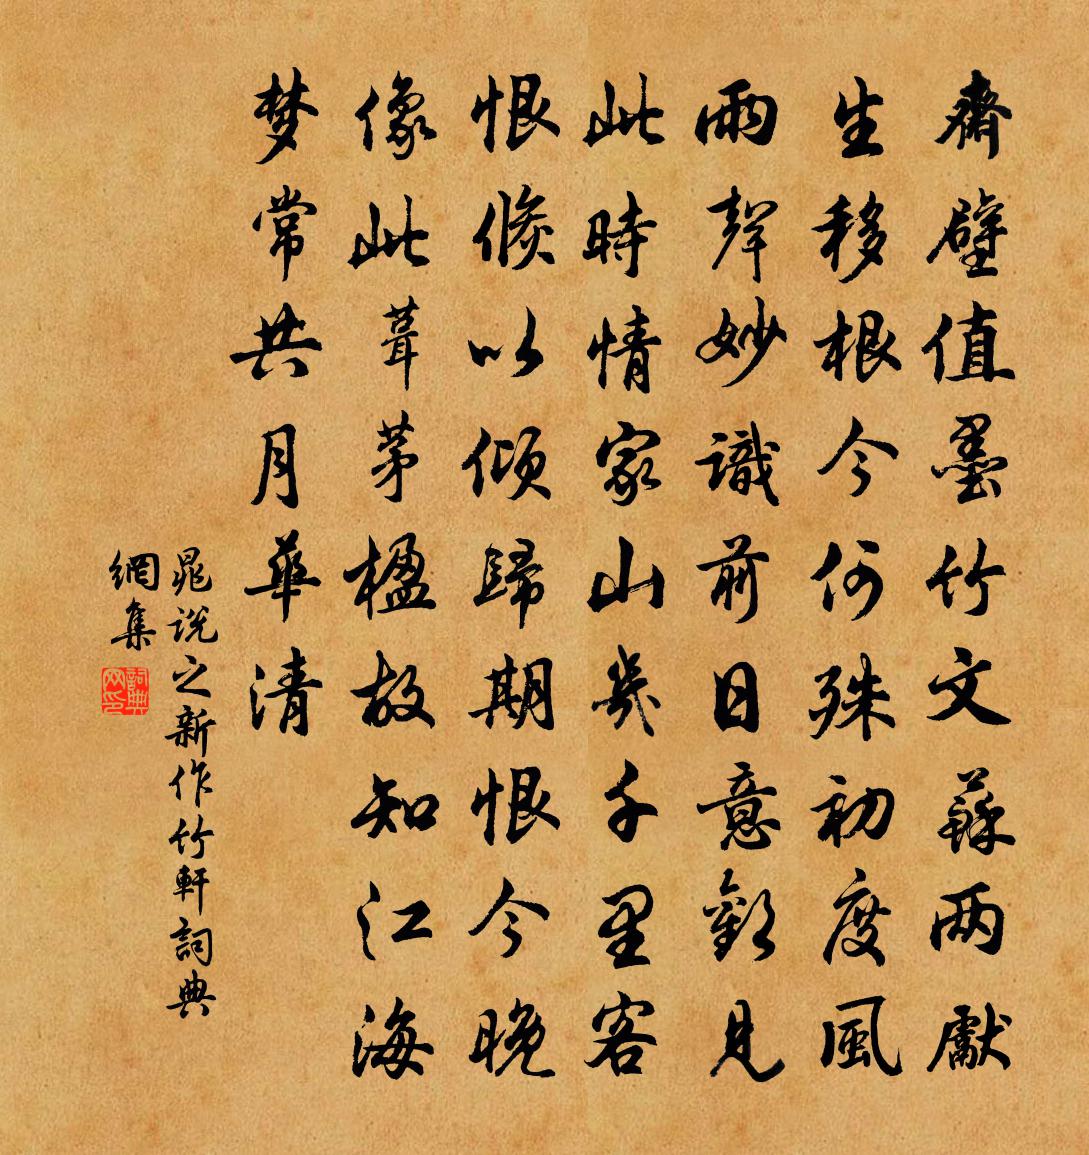 齋壁值墨竹文蘇两獻
生移根今何殊初度風
雨聲妙識前日意歡見
此時情家山幾千里客
恨倏以傾歸期恨今晚
像此葺茅楹故知江海
梦常共月華清
晁說之新作竹軒詞典
網集
詞典網印